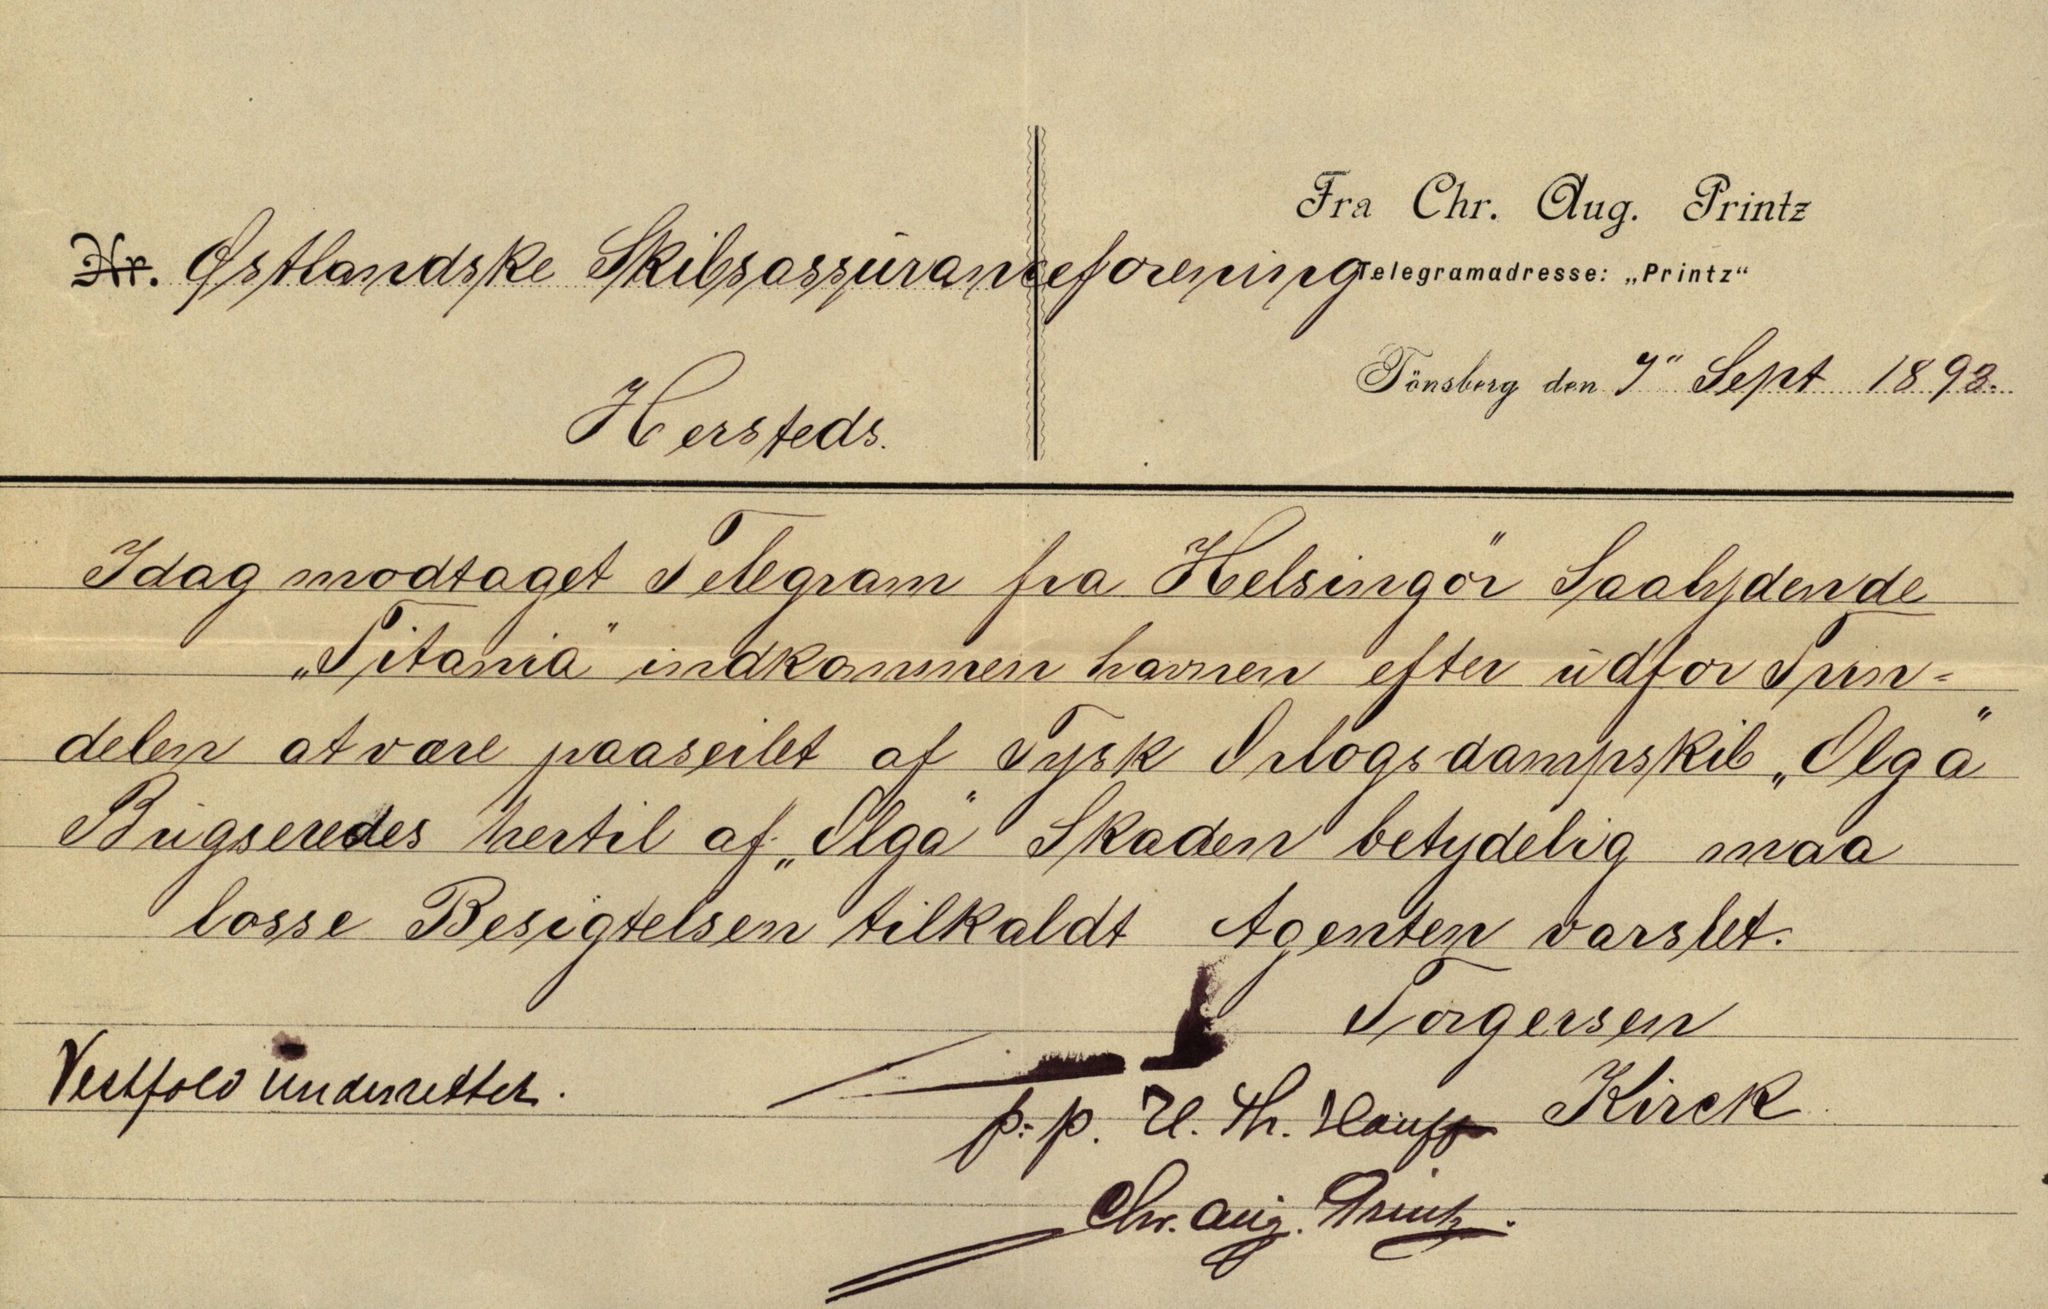 Fra Chr. Aug. Printz
Telegramadresse: „Printz"
Hr. Østlandske Skibsassuranceforening
Tönsberg den 7" Sept 1893.
Hersteds.
Idag modtaget Telegram fra Helsingör Saalydende
„Titania" indkommen havnen efter udfor Trin-
delen at være paaseilet af Tysk Orlogsdampskib „Olga"
Bugseredes hertil af „Olga" Skaden betydelig maa
losse Besigtelsen tilkaldt Agenten varslet.
Torgersen
Vestfold underrettet.
Kirck
p.p. U. Th. Hauff
Chr. Aug. Printz.